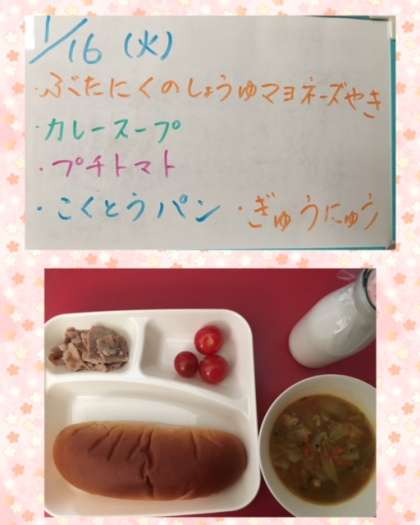 1/16(火)
・ぶたにくのしょうゆマヨネーズやき
・カレースープ
・プチトマト
・こくとうパン ・ぎゅうにゅう